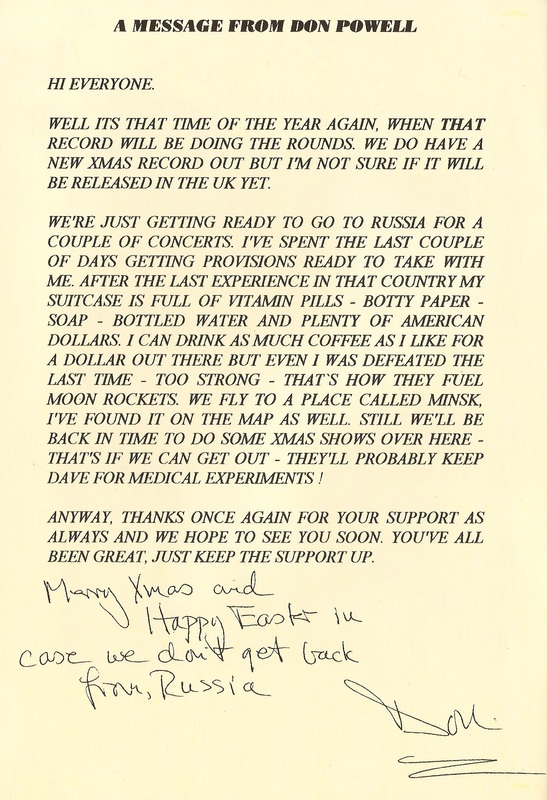 A MESSAGE FROM DON POWELL
HI EVERYONE.
WELL ITS THAT TIME OF THE YEAR AGAIN, WHEN THAT
RECORD WILL BE DOING THE ROUNDS. WE DO HAVE A
NEW XMAS RECORD OUT BUT I'M NOT SURE IF IT WILL
BE RELEASED IN THE UK YET.
WE'RE JUST GETTING READY TO GO TO RUSSIA FOR A
COUPLE OF CONCERTS. I'VE SPENT THE LAST COUPLE
OF DAYS GETTING PROVISIONS READY TO TAKE WITH
ME. AFTER THE LAST EXPERIENCE IN THAT COUNTRY MY
SUITCASE IS FULL OF VITAMIN PILLS - BOTTY PAPER -
SOAP - BOTTLED WATER AND PLENTY OF AMERICAN
DOLLARS. I CAN DRINK AS MUCH COFFEE AS I LIKE FOR
A DOLLAR OUT THERE BUT EVEN I WAS DEFEATED THE
LAST TIME - TOO STRONG - THAT`S HOW THEY FUEL
MOON ROCKETS. WE FLY TO A PLACE CALLED MINSK,
I'VE FOUND IT ON THE MAP AS WELL. STILL WE'LL BE
BACK IN TIME TO DO SOME XMAS SHOWS OVER HERE -
THAT'S IF WE CAN GET OUT - THEY'LL PROBABLY KEEP
DAVE FOR MEDICAL EXPERIMENTS !
ANYWAY, THANKS ONCE AGAIN FOR YOUR SUPPORT AS
ALWAYS AND WE HOPE TO SEE YOU SOON. YOU'VE ALL
BEEN GREAT, JUST KEEP THE SUPPORT UP.
Merry Xmas and
Happy Easter in
case we don't get back
from, Russia
Don.